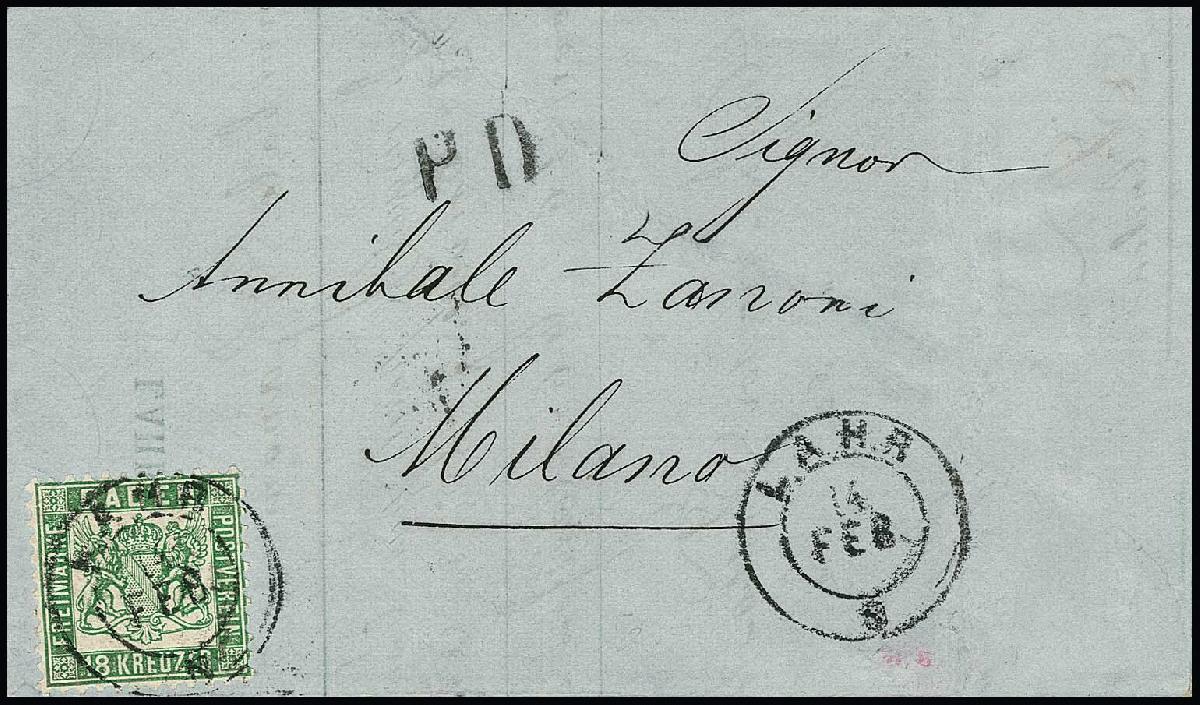 P D
Signor
Annibale Zanoni
Milano
LAHR
14
FEB
BADEN
FREIMARKE
POSTVEREIN
18 KREUZER
LAHR
FEB